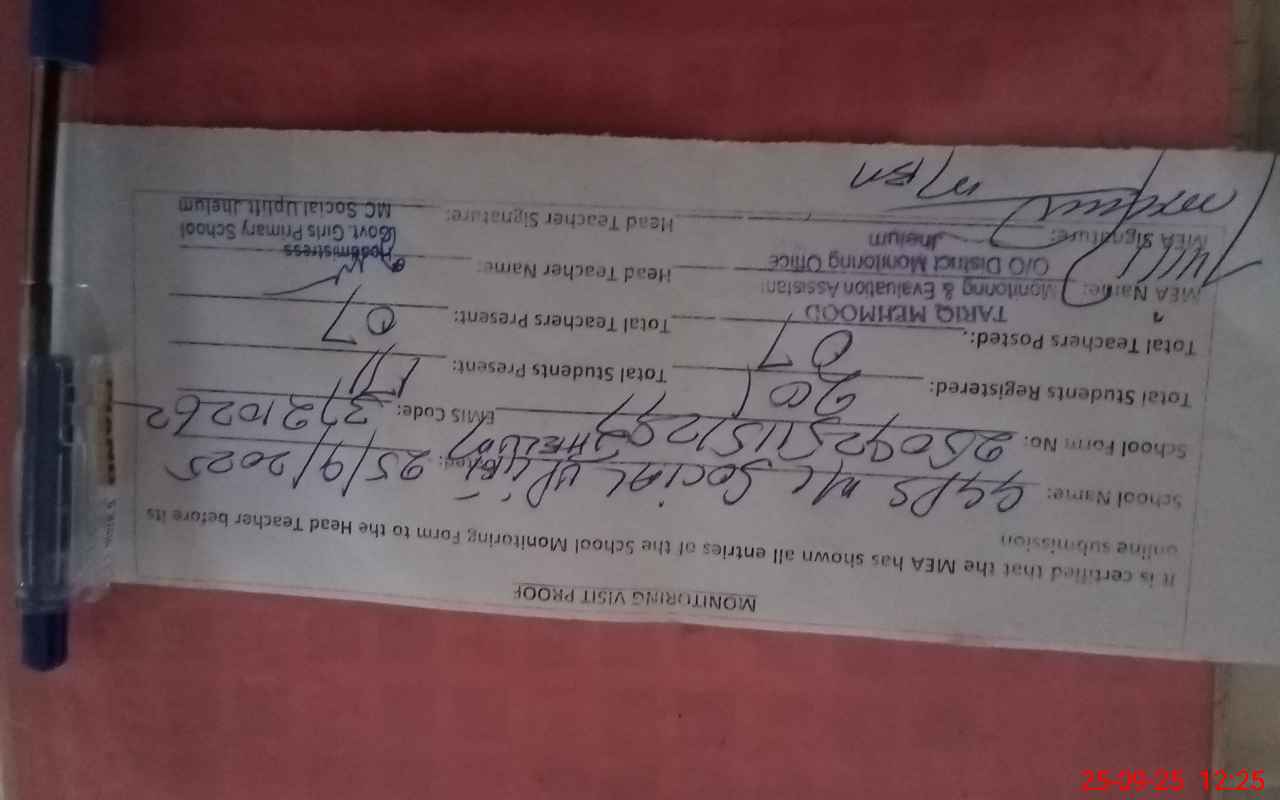 MONITORING VISIT PROOF
It is certified that the MEA has shown all entries of the School Monitoring Form to the Head Teacher before its
online submission
School Name: GGPS M/C SOCIAL UPLIFT JHELUM Dated: 25/9/2025
School Form No: EMIS Code: 37210262
Total Students Registered: 201 Total Students Present: 171
Total Teachers Posted: 07 Total Teachers Present: 07
MEA Name: TARIQ MEHMOOD
Monitoring & Evaluation Assistant
O/O District Monitoring Office
Jhelum
Head Teacher Name:
MEA Signature: Head Teacher Signature:
Headmistress
Govt. Girls Primary School
MC Social Uplift Jhelum
25-09-25 12:25